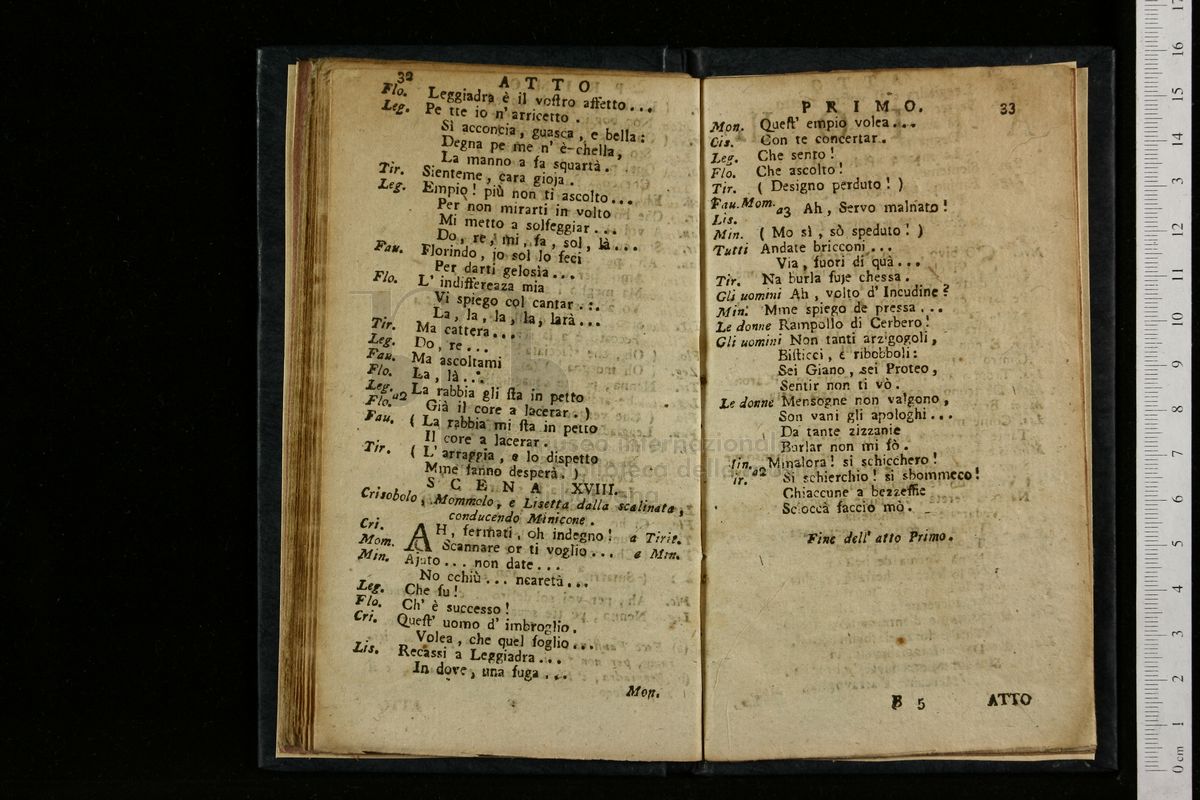 32 ATTO
Flo. Leggiadra è il voſtro affetto...
Leg. Pe tte io n'arricetto.
Sì acconcia, guasca, e bella:
Degna pe me n' è-chella,
La manno a fa squartà.
Tir. Sienteme, cara gioja.
Leg. Empio! più non ti ascolto...
Per non mirarti in volto
Mi metto a solfeggiar...
Do, re, mi, fa, sol, là...
Fau. Florindo, io sol lo feci
Per darti gelosìa...
Flo. L' indiffereaza mia
Vi spiego col cantar.:.
La, la, la, la, larà...
Tir. Ma cattera...
Leg. Do, re...
Fau. Ma ascoltami
Flo. La, là..:.
Leg. La rabbia gli ſta in petto
Flo. a2 Già il core a lacerar. )
Fau. ( La rabbia mi ſta in petto
Il core a lacerar.
Tir. ( L' arraggia, e lo dispetto
Mme fanno desperà. )
SCENA XVIII.
Crisobolo, Mommolo, e Lisetta dalla scalinata,
conducendo Minicone.
Cri. AH, fermati, oh indegno! a Tiris.
Mom. Scannare or ti voglio... a Min.
Min. Ajuto... non date...
No cchiù... ncaretà...
Leg. Che fu!
Flo. Ch' è successo!
Cri. Queſt' uomo d' imbroglio.
Volea, che quel foglio...
Lis. Recassi a Leggiadra...
In dove, una fuga...
Mon.
PRIMO. 33
Mon. Queſt' empio volea...
Cis. Con te concertar.
Leg. Che sento!
Flo. Che ascolto!
Tir. ( Designo perduto! )
Fau. Mom. a3 Ah, Servo malnato!
Lis.
Min. ( Mo sì, sò speduto! )
Tutti Andate bricconi...
Via, fuori di quà...
Tir. Na burla fuje chessa.
Gli uomini Ah, volto d' Incudine?
Min. Mme spiego de pressa...
Le donne Rampollo di Cerbero!
Gli uomini Non tanti arzigogoli,
Biſticci, e ribobboli:
Sei Giano, sei Proteo,
Sentir non ti vò.
Le donne Mensogne non valgono,
Son vani gli apologhi...
Da tante zizzanie
Burlar non mi fò.
Min. a2 Minalora! si schicchero!
Tir. Si schierchio! si sbommeco!
Chiaccune a bezzeffie
Sciocca faccio mò.
Fine dell' atto Primo.
B 5 ATTO